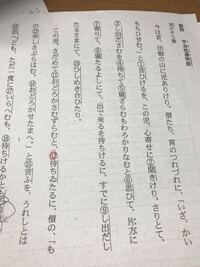 宇治拾遺物語
児のそら寝
今は昔、比叡の山に児ありけり。僧たち、宵のつれづれに、「いざ、かい
もちひせむ。」と①言ひけるを、この児、心寄せに②聞きけり。さりとて、
③し出ださむを④待ちて⑤寝ざらむもわろかりなむと⑥思ひて、片方に
⑦寄りて⑧寝たるよしにて、出で来るを待ちけるに、すでに⑨し出だし
たるさまにて、⑩ひしめき合ひたり。
この児、さだめて⑪おどろかさむずらむと、⑫待ちゐたるに、僧の、「も
の⑬申しさぶらはむ。⑭おどろかせたまへ。」と⑮言ふを、うれしとは
⑯思へども、ただ一度に⑰いらへむも、⑱待ちけるかと